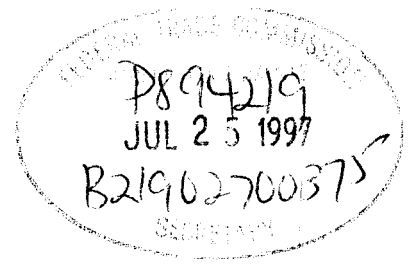 FEDERAL TRADE COMMISSION
P894219
JUL 25 1997
B21902700375
SECRETARY